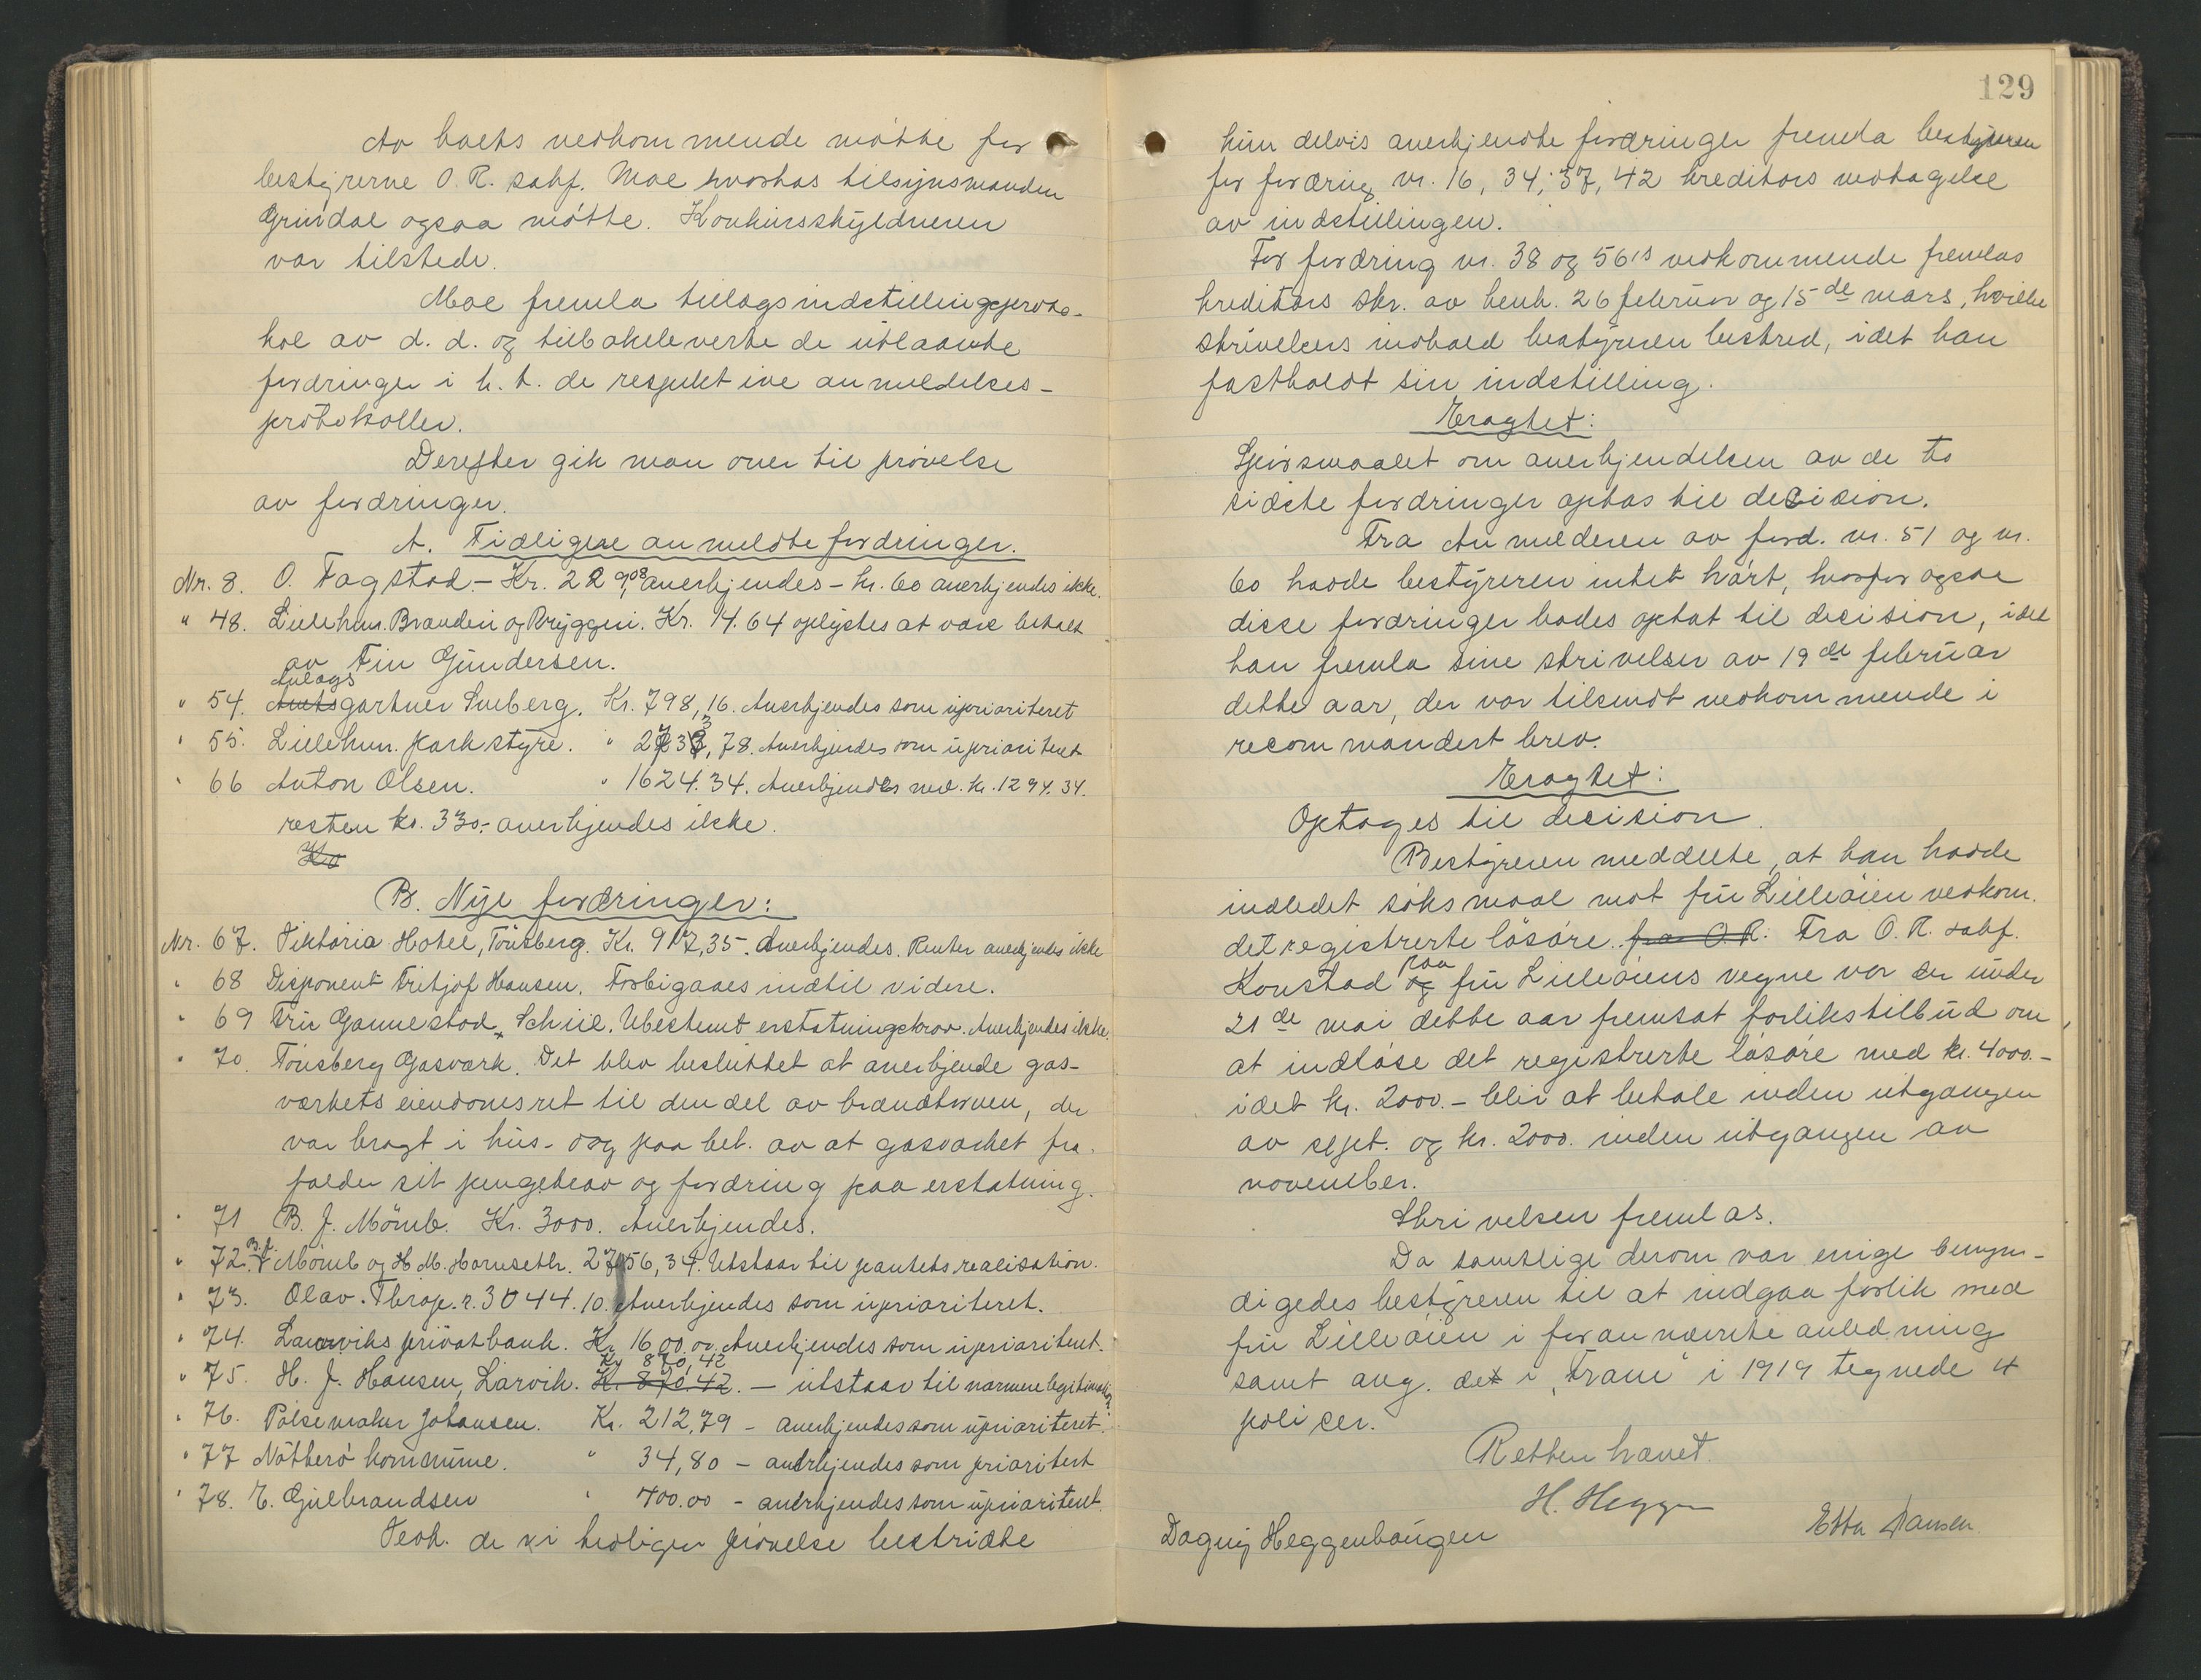 Av boets vedkommende møtte for
bestyrerne O. R. sakf. Moe hvorhos tilsynsmanden
Grindal ogsaa møtte. Konkursskyldneren
var tilstede.
Moe fremla tillægsindstillingsproto-
kol av d. d. og tilbakeleverte de utlaante
fordringer i h. t. de respektive anmeldelses-
protokoller.
Derefter gik man over til prøvelse
av fordringer.
A. Tidligere anmeldte fordringer.
Nr. 8. O. Fagstad - Kr. 22 908, anerkjendes - kr. 60 anerkjendes ikke.
" 48. Lilleham. Brænderi og Bryggeri. Kr. 14.64 oplystes at være betalt
av Fin Gundersen.
" 54. Amtsgartner Anlægs Sveberg. Kr. 798,16. Anerkjendes som uprioritert
" 55. Lillehm. parkstyre. " 2733,78. Anerkjendes som uprioritert
" 66 Anton Olsen. " 1624.34. Anerkjendes med kr. 1294.34.
resten kr. 330,- anerkjendes ikke.
Kr
B. Nye fordringer:
Nr. 67. Viktoria Hotel, Tønsberg. Kr. 917,35. Anerkjendes. Renter anerkjendes ikke
" 68 Disponent Fritjof Hansen. Forbigaaes indtil videre.
" 69 Fru Gannestad Schiil. Ubestemt erstatningskrav. Anerkjendes ikke.
" 70. Tønsberg Gasværk. Det blev besluttet at anerkjende gas-
værkets eiendomsret til den del av brændtorven, der
var bragt i hus - og paa bet. av at gasværket fra-
falder sit pengekrav og fordring paa erstatning.
" 71 B. J. Mømb. Kr. 3000. Anerkjendes.
" 72. B. J. Mømb og H. M. Hornseth. 2756,34. Utstaar til pantets realisation.
" 73. Olav Thrap. r. 3044.10. Anerkjendes som uprioritert.
" 74. Laurviks privatbank. Kr 1600.00. Anerkjendes som uprioritert.
" 75. H. J. Hansen, Larvik. Kr. 870.42 Kr 870,42. - utstaar til nærmere legitimation
" 76. Pølsemaker Johansen. Kr. 212,79 - anerkjendes som uprioritert.
" 77 Nøtterø kommune. " 34,80 - anerkjendes som prioritert
" 78. E. Gulbrandsen " 400.00 - anerkjendes som uprioritert.
Vedk. de vi tidligere prøvelse bestridte
129
kun delvis anerkjendte fordringer fremla bestyreren
for fordring nr. 16, 34, 37, 42 kreditors vedtagelse
av indstillingen.
For fordring nr. 38 og 56's vedkommende fremlas
kreditors skr. av henh. 26 februar og 15de mars, hvilke
skrivelsers indhold bestyreren bestred, idet han
fastholdt sin indstilling.
Eragtet:
Spørsmaalet om anerkjendelsen av de to
sidste fordringer optas til decision.
Fra Anmelderen av ford. nr. 51 og nr.
60 hadde bestyreren intet hørt, hvorfor ogsaa
disse fordringer bades optat til decision, idet
han fremla sine skrivelser av 19de februar
dette aar, der var tilsendt vedkommende i
recommandert brev.
Eragtet:
Optages til decision.
Bestyreren meddelte, at han hadde
indledet søksmaal mot fru Lilleøien vedkom.
det registrerte løsøre. fra O. R. Fra O. R. sakf.
Konstad og paa fru Lilleøiens vegne var der under
21de mai dette aar fremsat forlikstilbud om,
at indløse det registrerte løsøre med kr. 4000.-
idet kr. 2000.- blir at betale inden utgangen
av sept. og kr. 2000. inden utgangen av
november.
Skrivelsen fremlas.
Da samtlige derom var enige bemyn-
digedes bestyreren til at indgaa forlik med
fru Lilleøien i forannævnte anledning
samt ang. det i "Fram" i 1919 tegnede 4
policer.
Retten hævet.
H. Hegge
Dagny Heggenhaugen Ebba Hansen